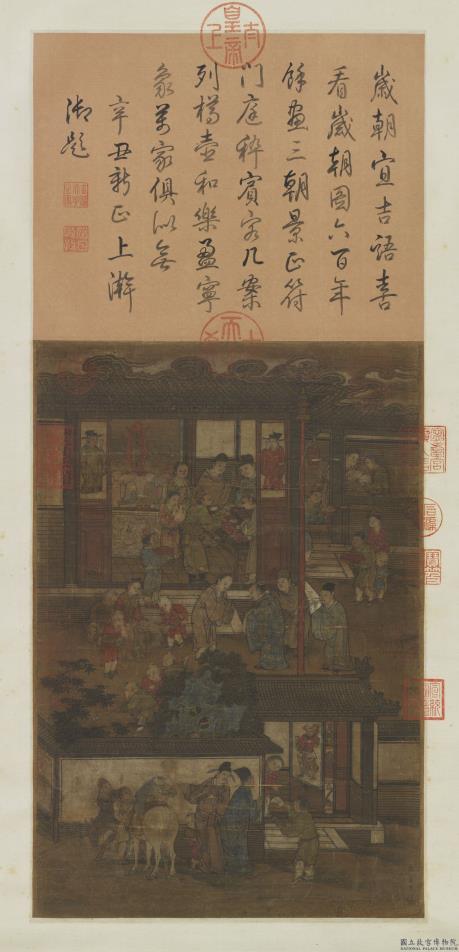 太上皇帝
歲朝宜吉語喜
看歲朝圖六百年
餘畫三朝景正符
門庭稡賓客几案
列樽壺和樂盈寧
象萬家俱似無
辛丑新正上澣
御題
國立故宮博物院
NATIONAL PALACE MUSEUM